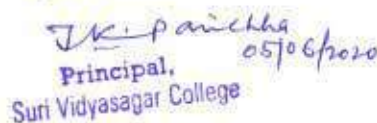 T.K. Parichha
05/06/2020
Principal,
Suri Vidyasagar College